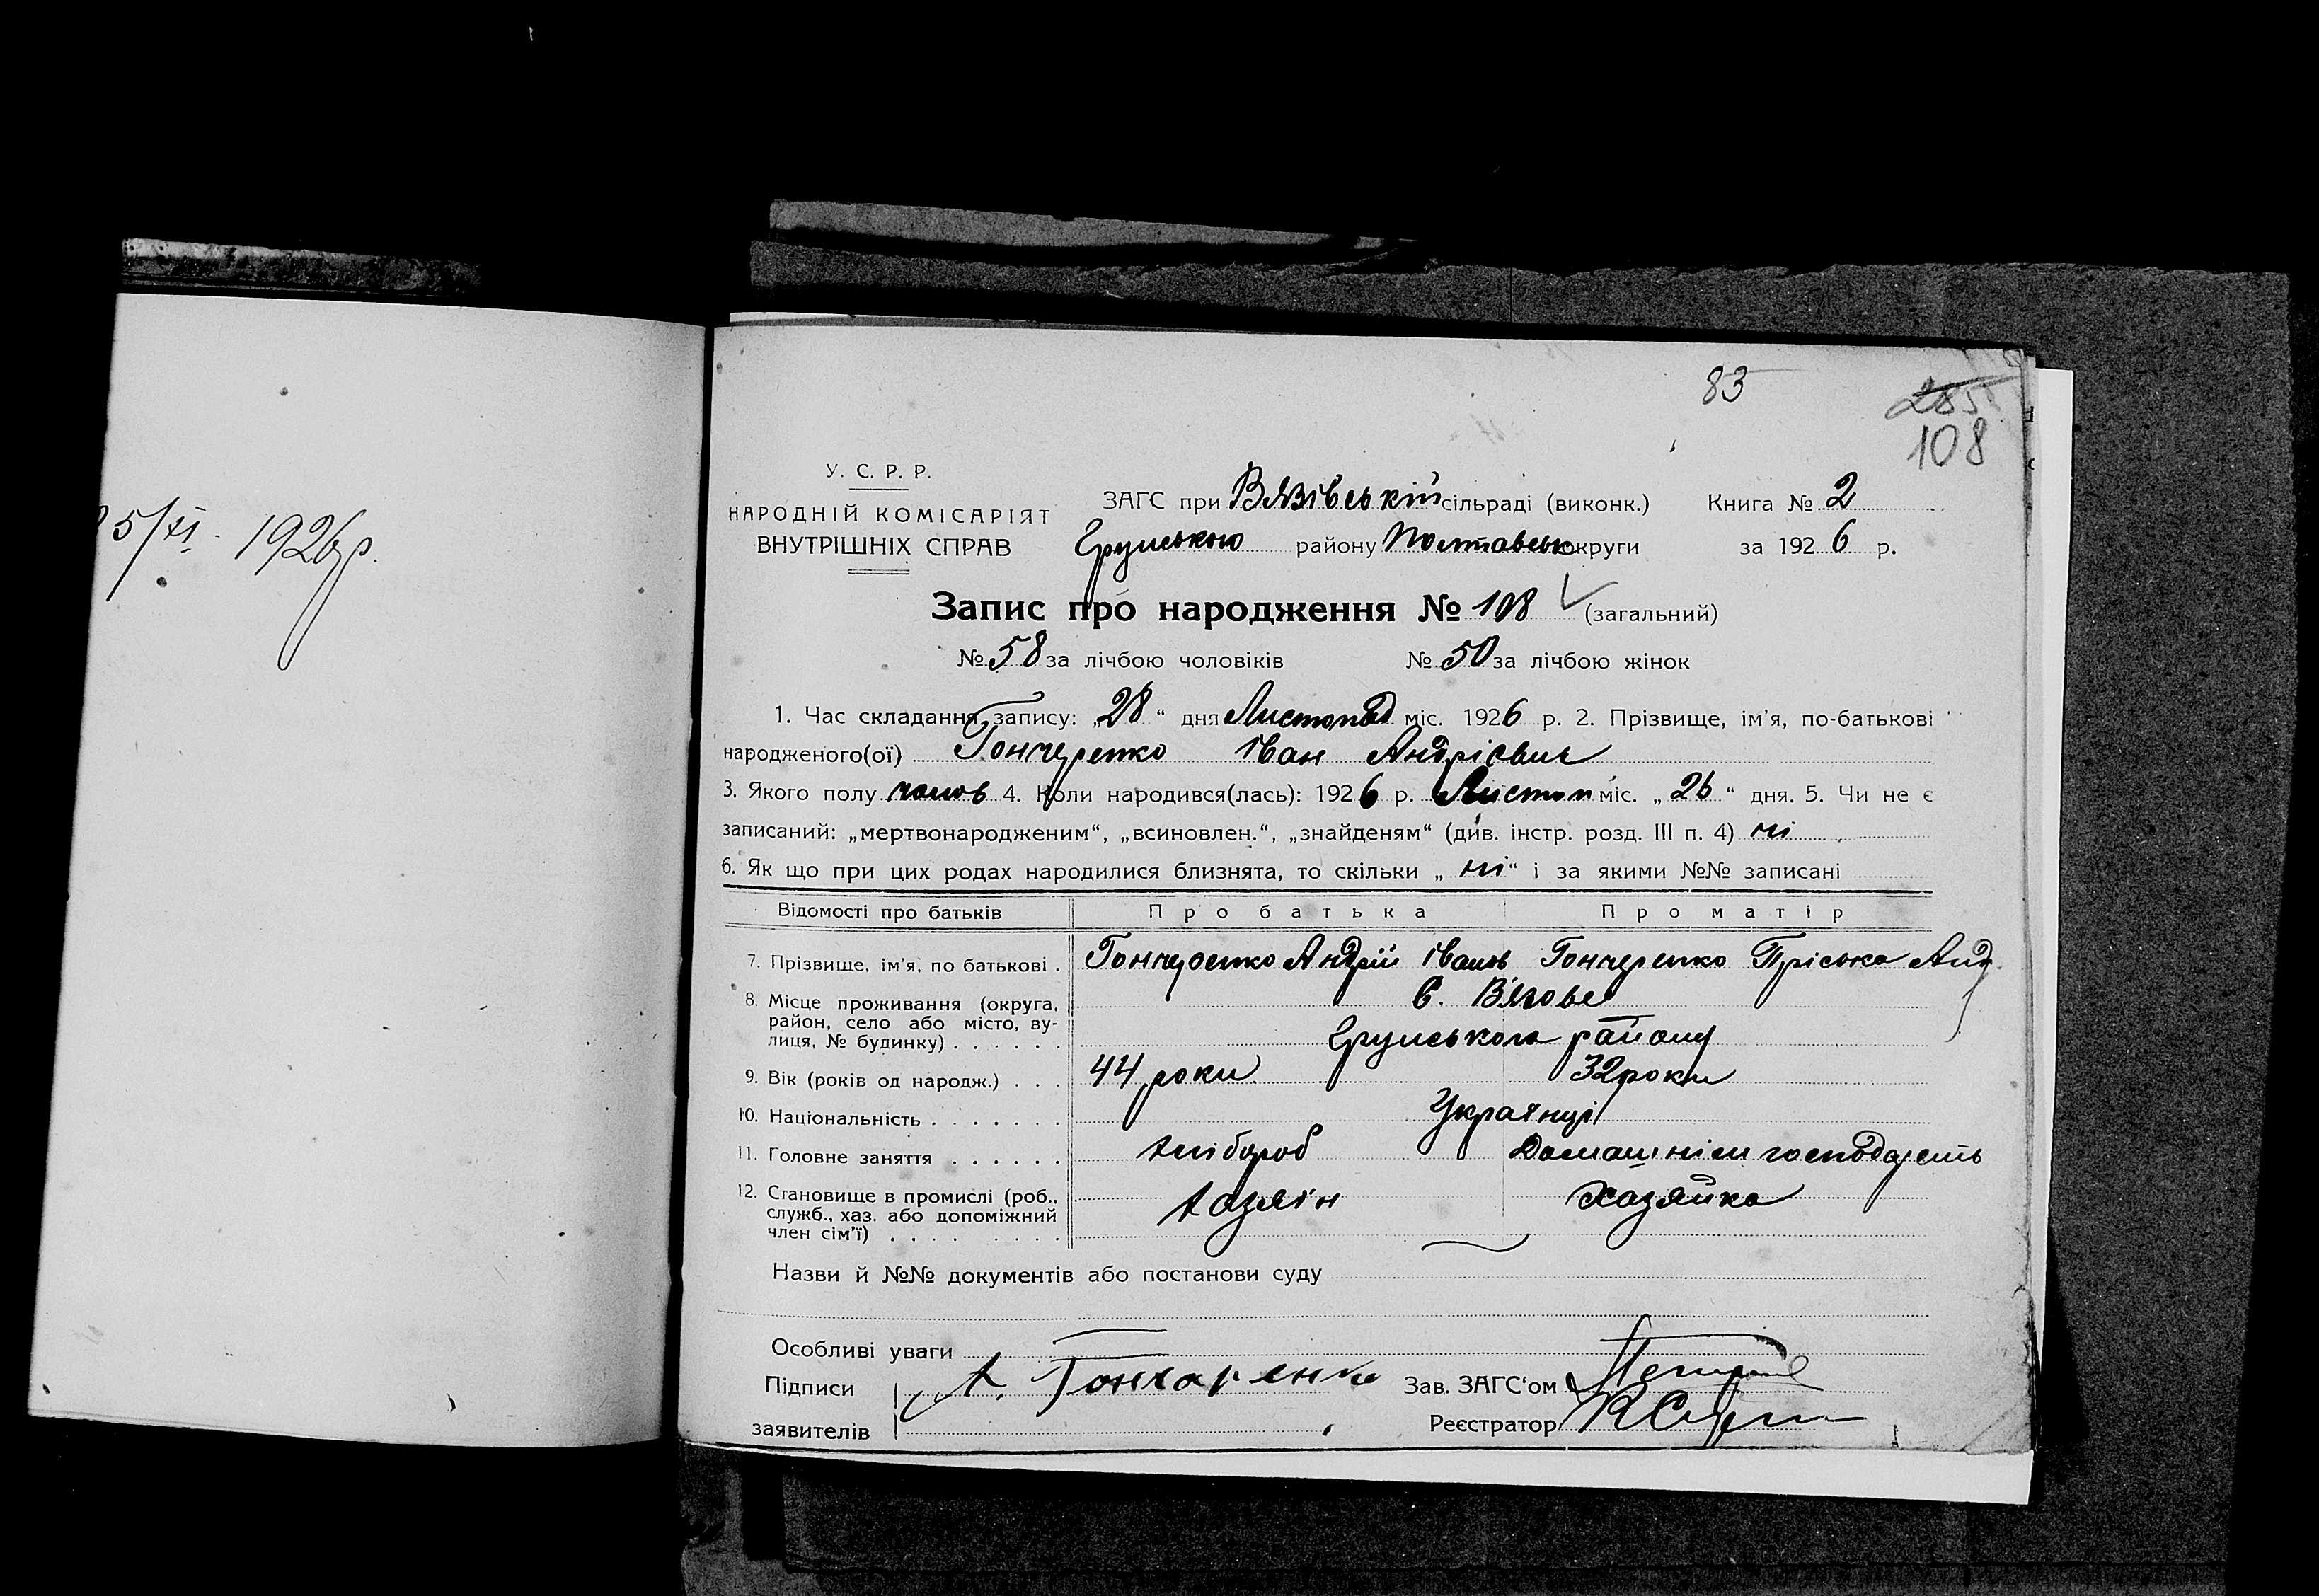 5/XI. 1926 р.
83
285
108
У. С. Р. Р.
НАРОДНІЙ КОМІСАРІЯТ
ВНУТРІШНІХ СПРАВ
ЗАГС при Вязівській сільраді (виконк.) Книга № 2
Грунською району Полтавсько округи за 1926 р.
Запис про народження № 108 (загальний)
№ 58 за лічбою чоловіків № 50 за лічбою жінок
1. Час складання запису: „28“ дня Листопад міс. 1926 р. 2. Прізвище, ім'я, по-батькові
народженого(ої) Гончеренко Іван Андрієвич
3. Якого полу чолов 4. Коли народився(лась): 1926 р. Листоп міс. „26“ дня. 5. Чи не є
записаний: „мертвонародженим“, „всиновлен.“, „знайденям“ (див. інстр. розд. III п. 4) ні
6. Як що при цих родах народилися близнята, то скільки „ні“ і за якими №№ записані
Відомості про батьків Про батька Про матір
7. Прізвище, ім'я, по батькові . Гончеренко Андрій Іванов Гончеренко Пріська Анд
8. Місце проживання (округа, район, село або місто, ву-лиця, № будинку) . . . . . . С. Вязове
Грунського району
9. Вік (років од народж.) . . . 44 роки 32 роки
10. Національність . . . . . . . Українці
11. Головне заняття . . . . . . хлібороб Домашнім господарсть
12. Становище в промислі (роб., служб., хаз. або допоміжний член сім'ї) . . . . . . . . . хазяїн хазяйка
Назви й №№ документів або постанови суду
Особливі уваги
Підписи А. Гончаренко Зав. ЗАГС'ом
заявителів Реєстратор